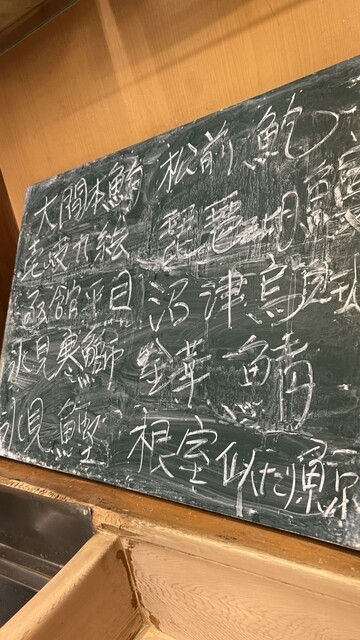 大間本鮪 松前 鮑
壱岐九絵 琵琶湖鰻
函館平目 沼津烏賊
氷見寒鰤 金華 鯖
氷見 鰹 根室似たり鯨